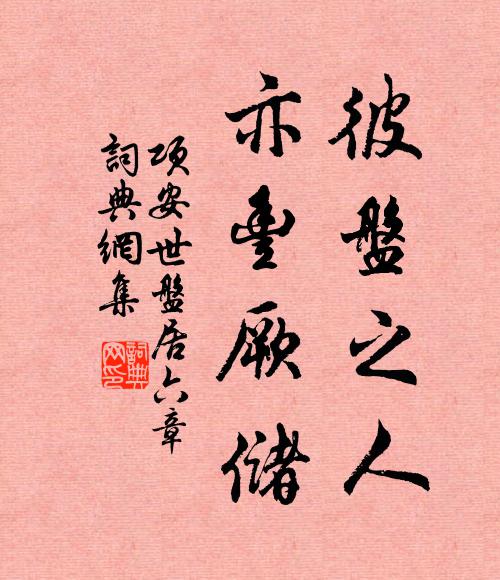 彼盤之人
亦豐厥儲
項安世盤居六章
詞典網集
詞典網印